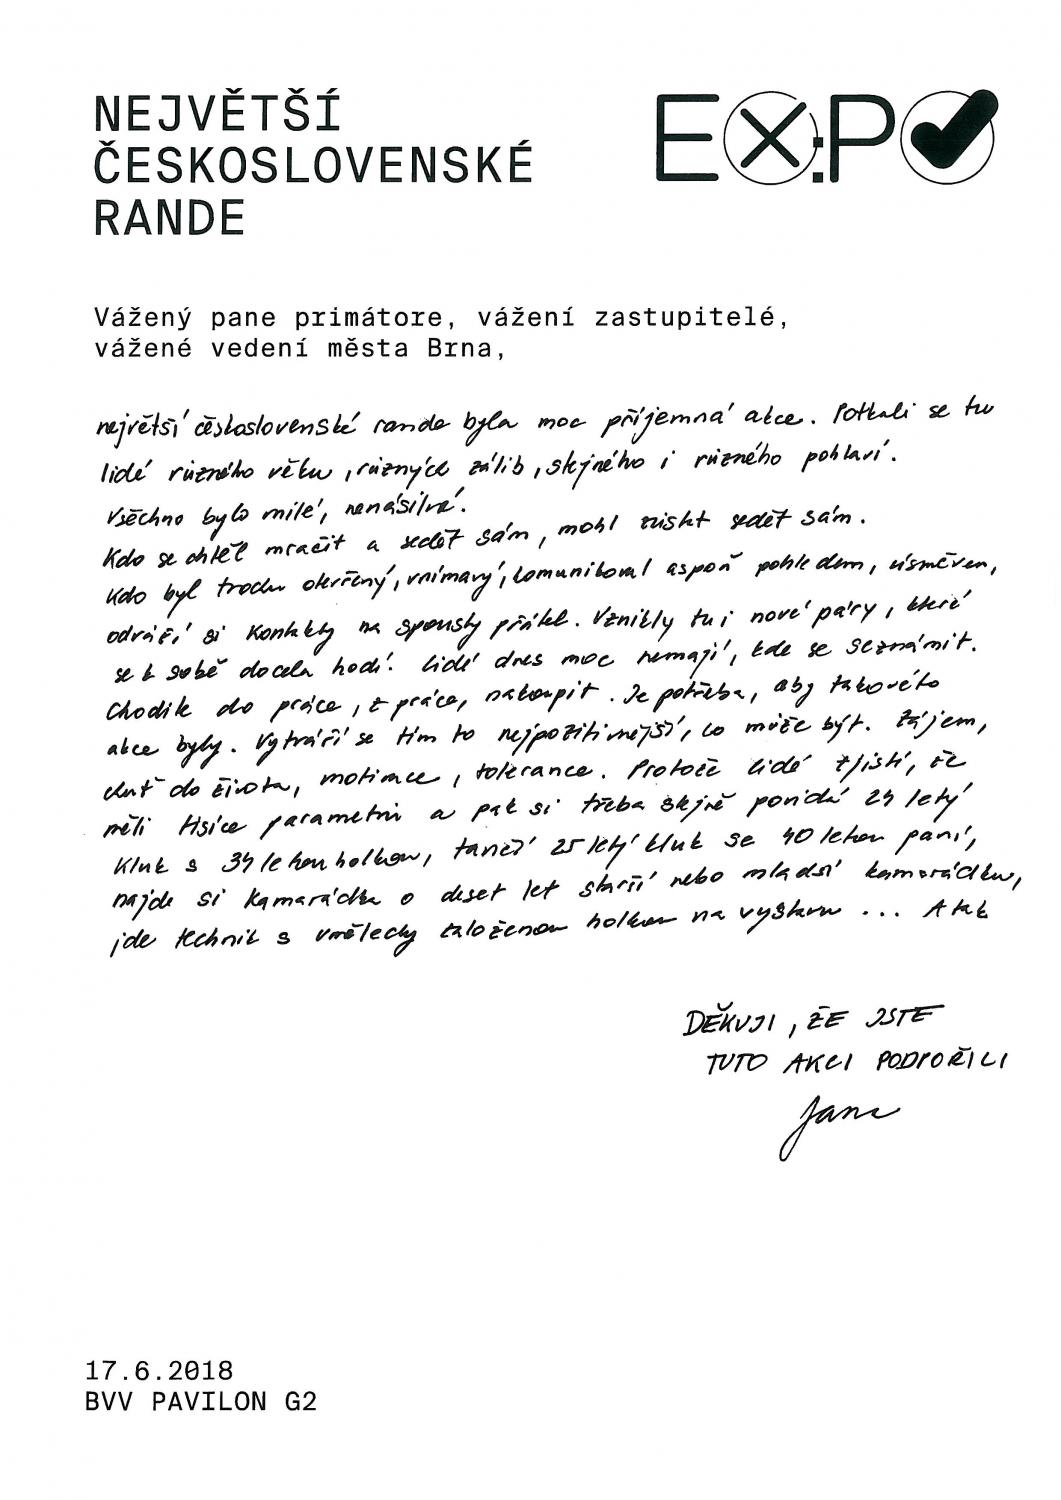 NEJVĚTŠÍ
ČESKOSLOVENSKÉ
RANDE
EX:PO
Vážený pane primátore, vážení zastupitelé,
vážené vedení města Brna,
největší československé rande byla moc příjemná akce. Potkali se tu
lidé různého věku, různých zálib, stejného i různého pohlaví.
Všechno bylo milé, nenásilné.
Kdo se chtěl mračit a sedět sám, mohl zůstat sedět sám.
Kdo byl trochu otevřený, vnímavý, komunikoval aspoň pohledem, úsměvem,
odváží si kontakty na spousty přátel. Vznikly tu i nové páry, které
se k sobě docela hodí. Lidé dnes moc nemají, kde se seznámit.
Chodit do práce, z práce, nakoupit. Je potřeba, aby takovéto
akce byly. Vytváří se tím to nejpozitivnější, co může být. Zájem,
chuť do života, motivace, tolerance. Protože lidé zjistí, že
měli tisíce parametrů a pak si třeba stejně povídá 24 letý
kluk s 34 letou holkou, tančí 25 letý kluk se 40 letou paní,
najde si kamarádka o deset let starší nebo mladší kamarádku,
jde technik s umělecky založenou holkou na výstavu ... A tak
DĚKUJI, ŽE JSTE
TUTO AKCI PODPOŘILI
Jana
17.6.2018
BVV PAVILON G2